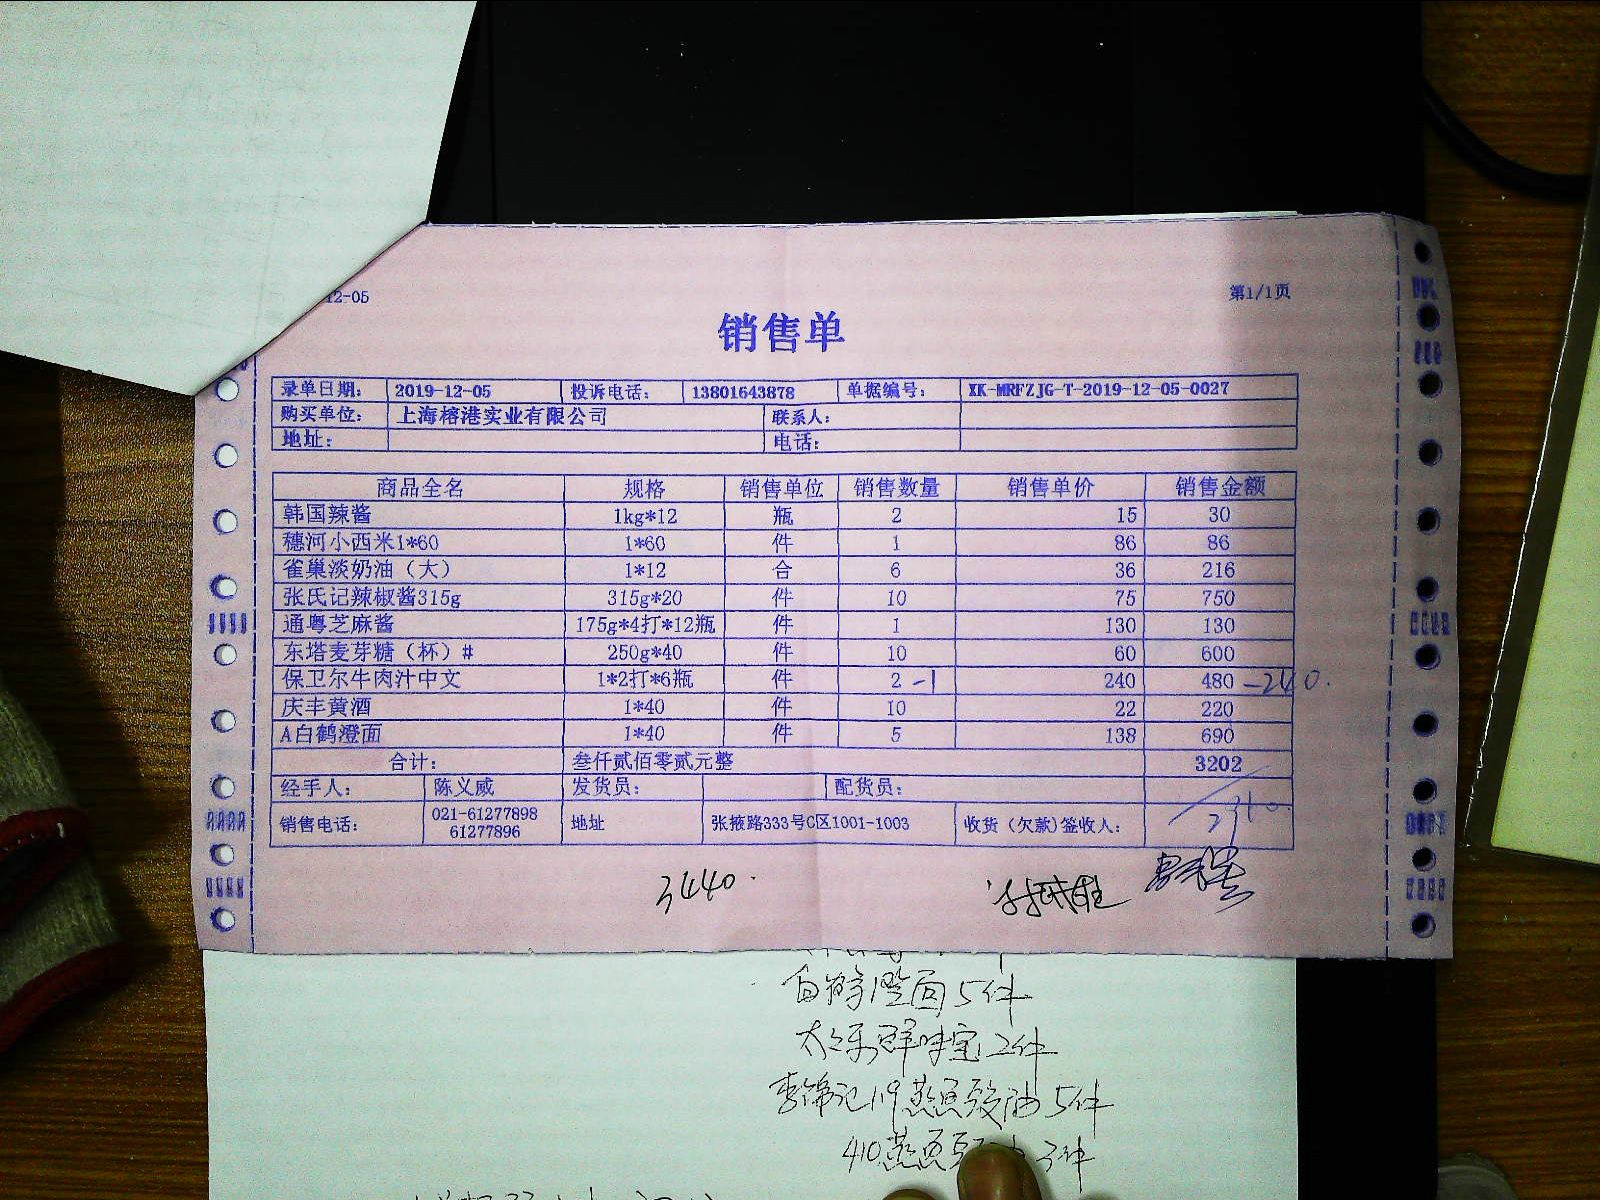 12-05
第1/1页
销售单
录单日期: 2019-12-05 投诉电话: 13801643878 单据编号: XK-MRFZJG-T-2019-12-05-0027
购买单位: 上海榕港实业有限公司 联系人:
地址: 电话:
商品全名 规格 销售单位 销售数量 销售单价 销售金额
韩国辣酱 1kg*12 瓶 2 15 30
穗河小西米1*60 1*60 件 1 86 86
雀巢淡奶油（大） 1*12 合 6 36 216
张氏记辣椒酱315g 315g*20 件 10 75 750
通粤芝麻酱 175g*4打*12瓶 件 1 130 130
东塔麦芽糖（杯）# 250g*40 件 10 60 600
保卫尔牛肉汁中文 1*2打*6瓶 件 2 -1 240 480 -240.
庆丰黄酒 1*40 件 10 22 220
A白鹤澄面 1*40 件 5 138 690
合计: 叁仟贰佰零贰元整 3202
经手人: 陈义威 发货员: 配货员:
销售电话: 021-61277898 61277896 地址 张掖路333号C区1001-1003 收货（欠款）签收人:
3440.
白鹤澄面5件
太太乐鲜味宝2件
李锦记119蒸鱼豉油5件
410蒸鱼豉 3件